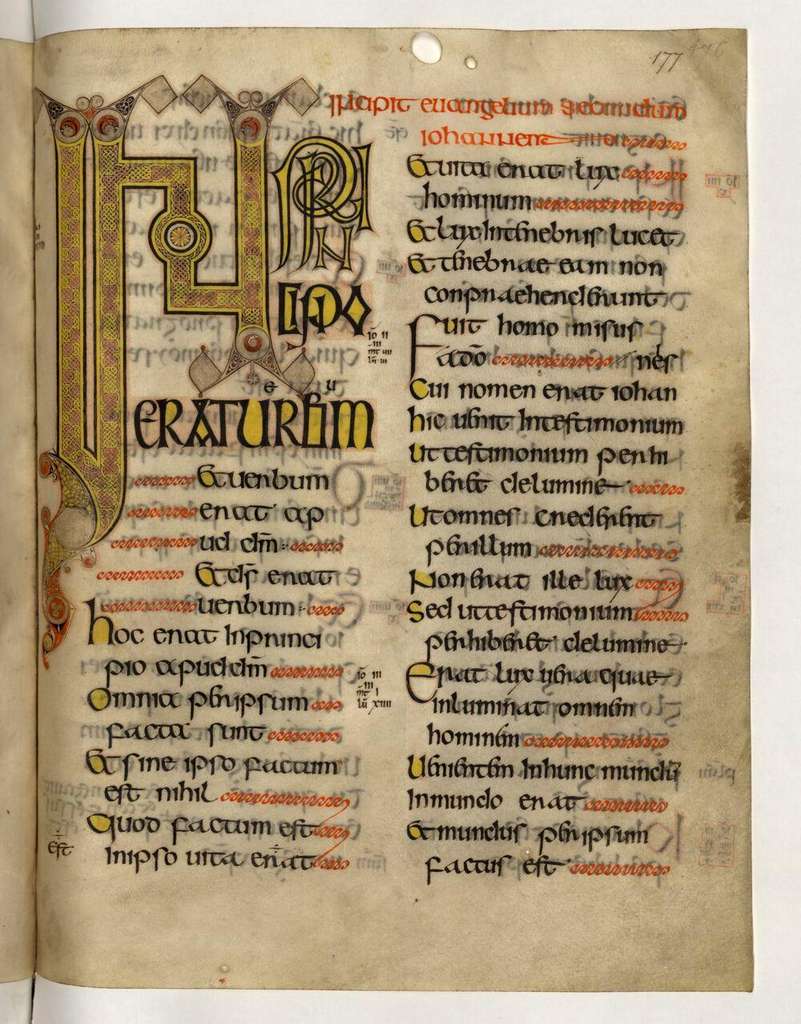 177
Incipit euangelium secundum
iohannem
IN PRIN
CIPIO
ERATUERBUM
Etuerbum
erat ap
ud dm̄
Etds̄ erat
uerbum
hoc erat Inprinci
pio apuddm̄
Omnia peripsum
facta sunt
Et sine ipso factum
est nihil
Quod factum est
Inipso uita erat
est
Etuita erat lux
hominum
Etlux Intenebris lucet
Et tenebrae eam non
conpraehenderunt
Fuit homo misus
ado nes
Cui nomen erat iohan
hic uenit Intestimonium
Ut testimonium perhi
beret delumine
Utomnes crederent
perillum
Non erat ille lux
Sed uttestimonium
perhiberet delumine
Erat lux uera quae
inluminat omnem
hominem
Uenientem Inhunc mundū
Inmundo erat
Et mundus peripsum
factus est